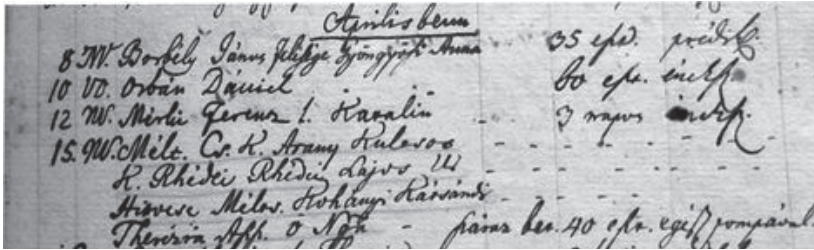 Aprilisben
8 N. Borbély János felesége Gyöngyösi Anna 35 esz. prédik.
10 VD. Orbán Dániel 60 esz. éneksz.
12 N. Ferenz l. Karalin 3 napos éneksz.
15. N. Mélt. Cs. K. Arany Kulcsos
K. Rhédei Rhédei Lajos Úr
Hitvese Mélt. Kohányi Kácsándi
Therézia Assz. ő Nga száraz bet. 40 esz. egész pompával.